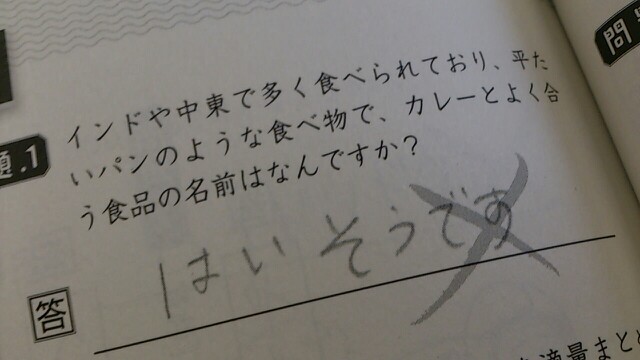 問
題.1
インドや中東で多く食べられており、平た
いパンのような食べ物で、カレーとよく合
う食品の名前はなんですか?
答
はいそうです